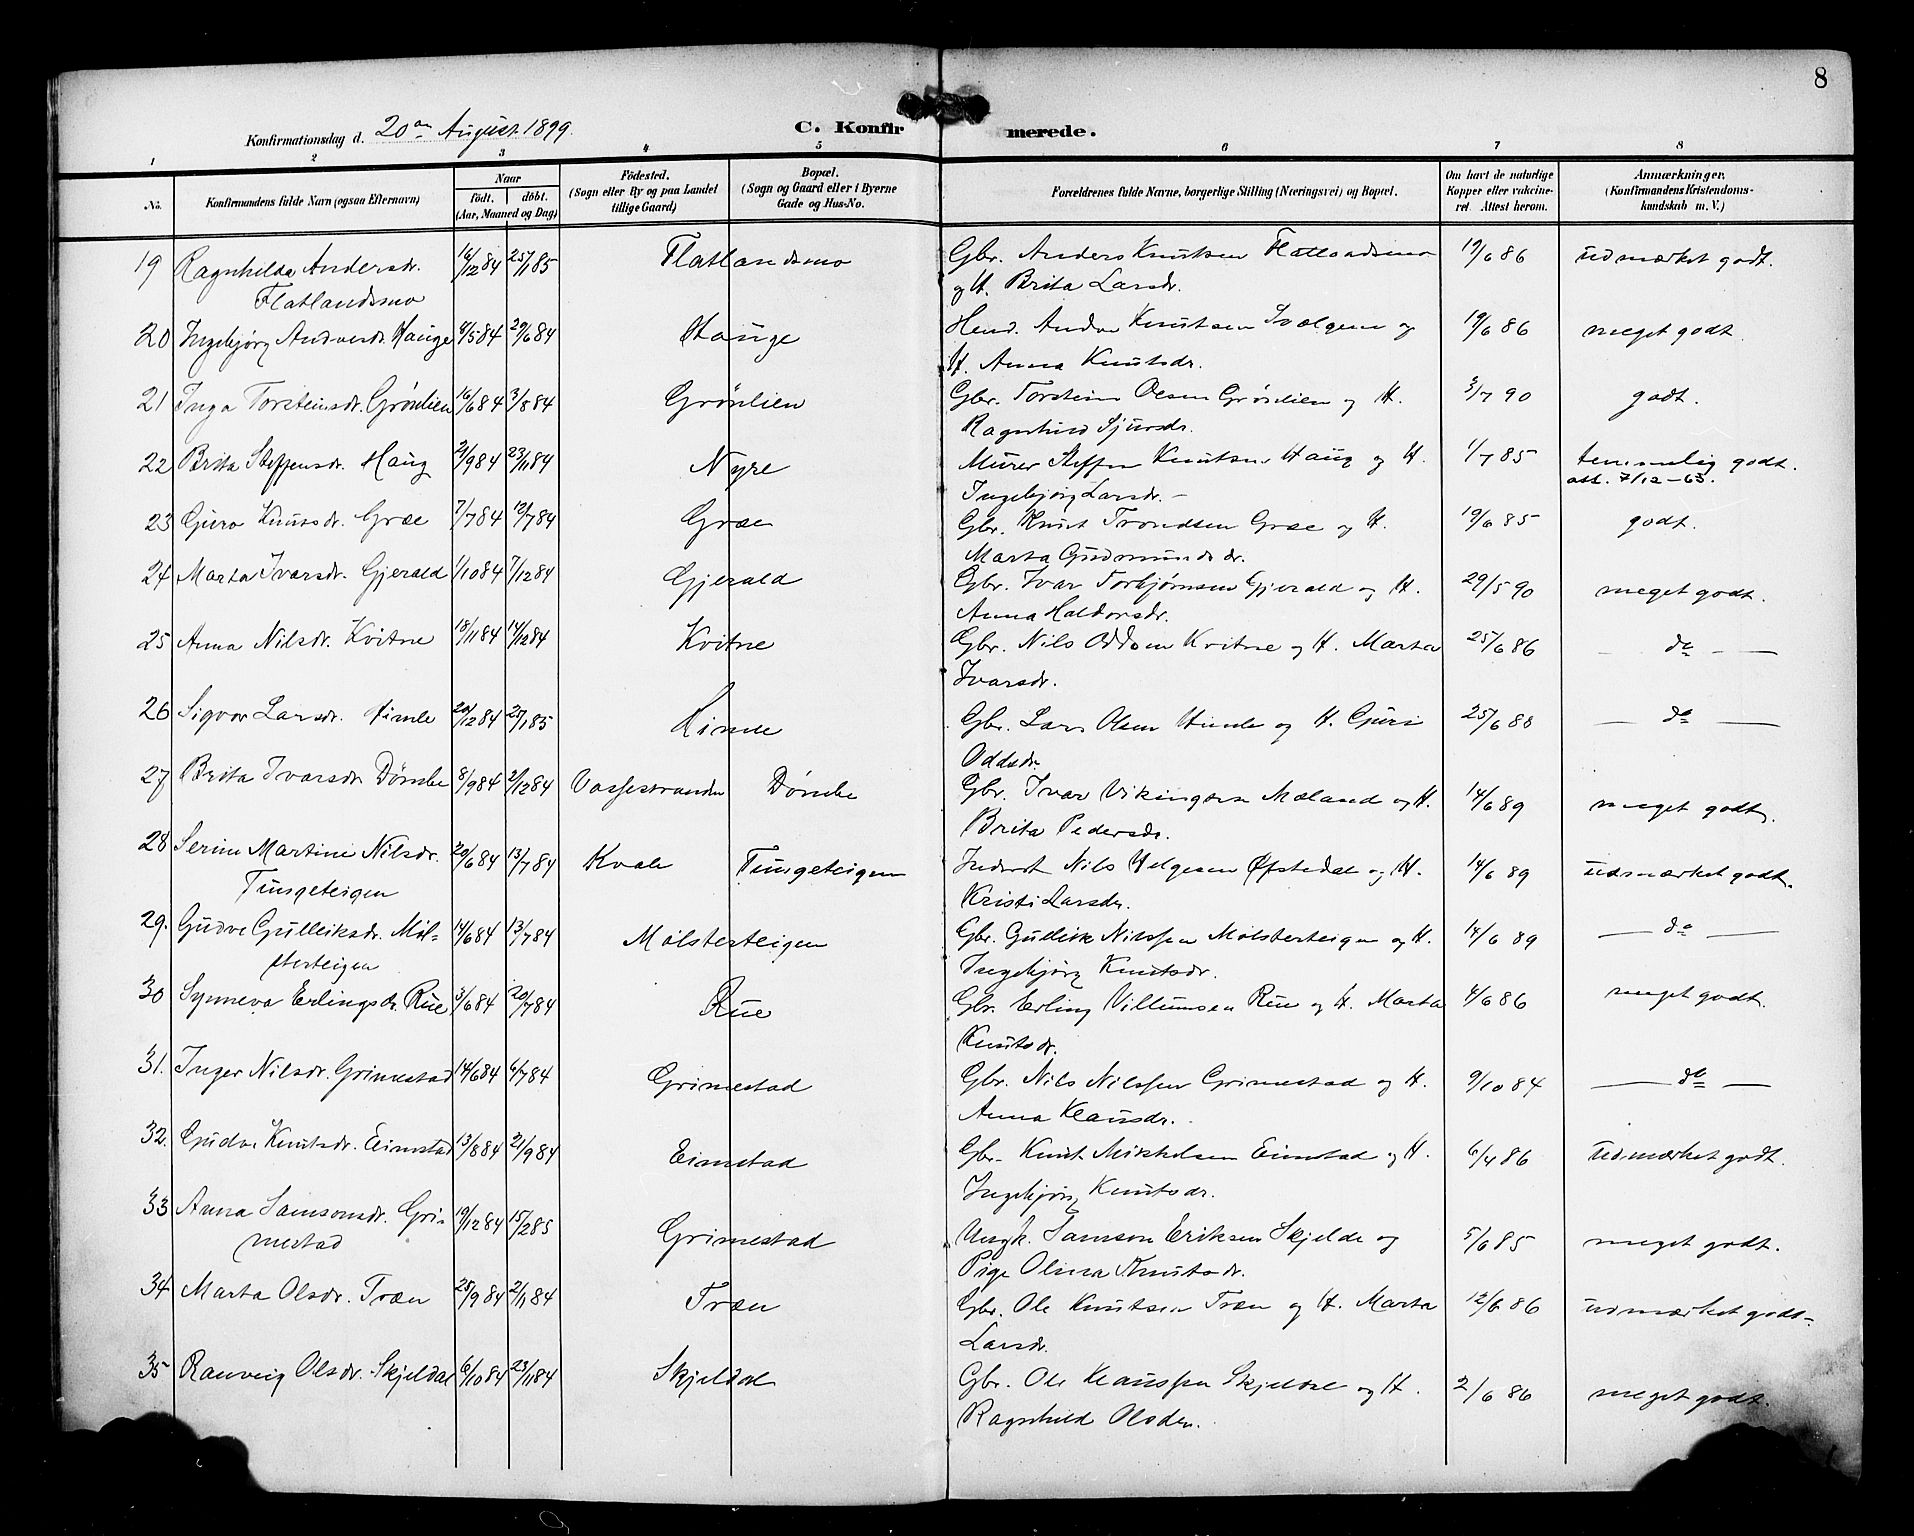 8
Konfirmationsdag d. 20de August 1899.
C. Konfirmerede.
1 2 3 4 5 6 7 8
No. Konfirmandens fulde Navn (ogsaa Efternavn) Naar født. døbt. (Aar, Maaned og Dag) Fødested. (Sogn eller By og paa Landet tillige Gaard) Bopæl. (Sogn og Gaard eller i Byerne Gade og Hus-No. Forældrenes fulde Navne, borgerlige Stilling (Næringsvei) og Bopæl. Om havt de naturlige Kopper eller vakcineret. Attest herom. Anmærkninger. (Konfirmandens Kristendomskundskab m. V.)
19 Ragnhilda Andersdr. 16/12 84 25/1 85 Flatlandsmo Gbr. Anders Knutsen Flatlandsmo 19/6 86 udmærket godt.
Flatlandsmo og H. Brita Larsdr.
20 Ingebjørg Andversdr. Hauge 8/5 84 29/6 84 Hauge Knutsen og 19/6 86 meget godt.
H. Anna Knutsdr.
21 Inga Torsteinsdr. Grønlien 16/6 84 3/8 84 Grønlien Gbr. Torstein Olsen Grønlien og H. 3/7 90 godt.
Ragnhild Sjursdr.
22 Brita Steffensdr. Haug 2/9 84 23/11 84 Nyre Murer Steffen Knutsen Haug og H. 1/7 85 temmelig godt.
Ingebjørg Larsdr. – att. 7/12-63.
23 Guro Knutsdr. Græe 7/7 84 12/7 84 Græe Gbr. Knut Trondsen Græe og H. 19/6 85 godt.
Marta Gudmundsdr.
24 Marta Ivarsdr. Gjerald 1/10 84 7/12 84 Gjerald Gbr. Ivar Torbjørnsen Gjerald og H. 29/5 90 meget godt.
Anna Haldorsdr.
25 Anna Nilsdr. Kvitne 18/11 84 14/12 84 Kvitne Gbr. Nils Oddsen Kvitne og H. Marta 25/6 86 – do –
Ivarsdr.
26 Sigvor Larsdr. Himle 20/12 84 25/1 85 Himle Gbr. Lars Olsen Himle og H. Guri 25/6 88 – do –
Oddsdr.
27 Brita Ivarsdr. Dømbe 8/9 84 2/12 84 Vossestranden Dømbe Gbr. Ivar Vikingsen Mæland og H. 14/6 89 meget godt.
Brita Pedersdr.
28 Serine Martine Nilsdr. 20/6 84 13/7 84 Kvale Tungeteigen Inderst Nils Helgesen Øfstedal og H. 14/6 89 udmærket godt.
Tungeteigen Kristi Larsdr.
29. Gudve Gulleiksdr. Møl- 14/6 84 13/7 84 Mølsterteigen Gbr. Gulleik Nilssen Mølsterteigen og H. 14/6 89 – do –
sterteigen Ingebjørg Knutsdr.
30 Synneva Erlingsdr. Rue 3/6 84 20/7 84 Rue Gbr. Erling Villumsen Rue og H. Marta 4/6 86 meget godt.
Knutsdr.
31. Inger Nilsdr. Grimestad 14/6 84 6/7 84 Grimestad Gbr. Nils Nilssen Grimestad og H. 9/10 84 – do –
Anna Klausdr.
32. Gudve Knutsdr. Eimstad 13/8 84 21/9 84 Eimstad Gbr. Knut Mikkelsen Eimstad og H. 6/4 86 udmærket godt.
Ingebjørg Knutsdr.
33 Anna Samsonsdr. Gri- 19/12 84 15/2 85 Grimestad Ungk. Samson Eriksen Skjelde og 5/6 85 meget godt.
mestad Pige Olina Knutsdr.
34 Marta Olsdr. Træn 25/9 84 2/11 84 Træn Gbr. Ole Knutsen Træn og H. Marta 12/6 86 udmærket godt.
Larsdr.
35 Ranveig Olsdr. Skjeldal 6/10 84 23/11 84 Skjeldal Gbr. Ole Klaussen Skjeldal og H. 2/6 86 meget godt.
Ragnhild Olsdr.